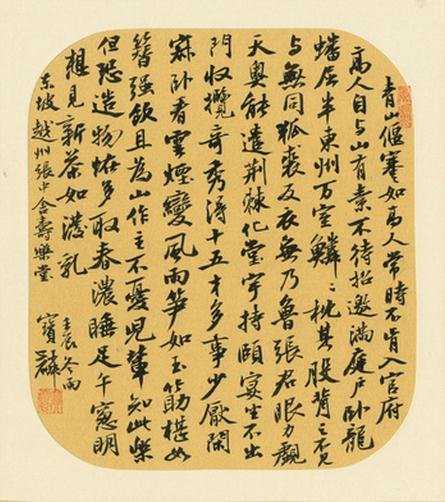 青山偃蹇如高人常時不肯入官府
高人自与山有素不待招邀滿庭戶卧龍
蟠屈半東州万室鱗〻枕其股背之不見
与無同狐裘反衣無乃魯張君眼力覷
天奧能遣荊棘化堂宇持頤宴坐不出
門收攬奇秀得十五才多事少厭閑
寂卧看雲煙變風雨筍如玉筯椹如
簪強飲且為山作主不憂兒輩知此樂
但恐造物恠多取春濃睡足午窗明
想見新茶如潑乳
東坡越州張中舍壽樂堂
壬辰冬雨
寶